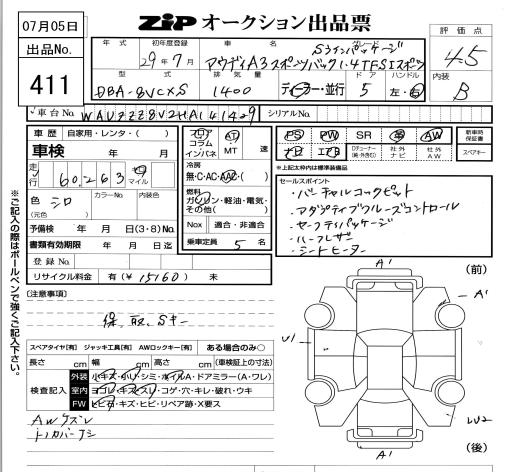 07月05日
ZIP オークション出品票
出品No.
411
年式 初年度登録 車名 評価点
29年7月 アウディA3スポーツバック1.4TFSIスポーツ
S3ラインパッケージ
4.5
型式 排気量 ドア ハンドル 内装
DBA-8VCXS 1400 ディーラー・並行 5 左・右 B
車台No. WAUZZZ8V2HA141429 シリアルNo.
車歴 自家用・レンタ・( )
フロア コラム インパネ AT MT 速
PS PW SR 革 AW 新車時保証書
ナビ エアB Dチューナー(純・外含む) 社外ナビ 社外AW スペアキー
※上記太枠内は標準装備品
車検 年 月
冷房
無・C・AC・AAC・( )
走行 60,263 キロ マイル
燃料
ガソリン・軽油・電気・その他( )
色 シロ カラーNo. 内装色
(元色)
Nox 適合・非適合
予備検 年 月 日(3・8)No.
書類有効期限 年 月 日迄
乗車定員 5 名
登録No.
リサイクル料金 有(¥15160) 未
セールスポイント
・バーチャルコックピット
・アダプティブクルーズコントロール
・セーフティパッケージ
・ハーフレザー
・シートヒーター
※ご記入の際はボールペンで強くご記入下さい。
[注意事項]
保、取、Sキー
スペアタイヤ[有] ジャッキ工具[有] AWロックキー[有] ある場合のみ○
長さ cm 幅 cm 高さ cm (車検証上の寸法)
検査記入 外装 小キズ・小U・シミ・ホイルA・ドアミラー(A・ワレ)
室内 ヨゴレ・キズ・スリ・コゲ・穴・キレ・破れ・ウキ
FW ヒビ石・キズ・ヒビ・リペア跡・X要ス
AWケズレ
トノカバーケシ
A1 (前)
A1
U1
LU2
A1 (後)